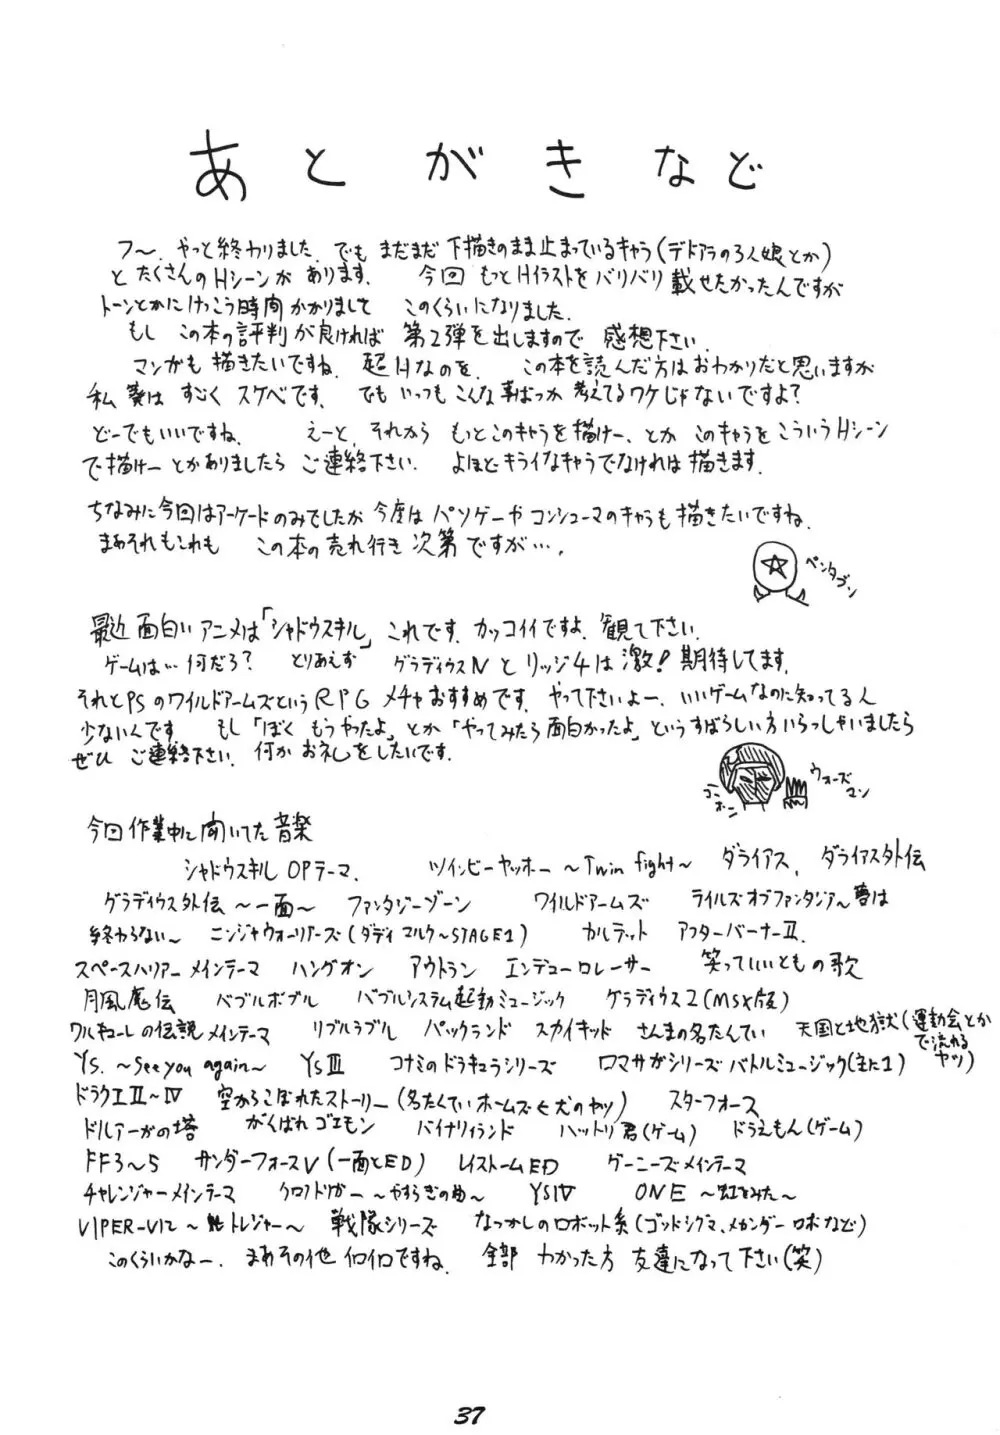 あとがきなど
フ〜、やっと終わりました。でも まだまだ 下描きのまま止まっているキャラ(デドアラの3人娘とか)
と たくさんのHシーンが あります。 今回 もっとHイラストを バリバリ 載せたかったんですが
トーンとかに けっこう時間 かかりまして このくらいになりました。
もし この本の評判が良ければ 第2弾を出しますので 感想下さい。
マンガも 描きたいですね。 超Hなのを。 この本を読んだ方はおわかりだと思いますが
私 はすごく スケベです。 でも いっつも こんな事ばっか 考えてるワケじゃないですよ?
どーでもいいですね。 えーと、それから もっとこのキャラを描けー、とか このキャラを こういうHシーン
で描けー とかありましたら ご連絡下さい。 よほどキライなキャラでなければ 描きます。
ちなみに今回はアーケードのみでしたが 今度は パソゲーや コンシューマのキャラも 描きたいですね。
まあそれもこれも この本の売れ行き 次第ですが…。
ペンタゴン
最近 面白い アニメは「シャドウスキル」これです。カッコイイですよ。観て下さい。
ゲームは…何だろ? とりあえず グラディウスⅣ と リッジ4は 激!期待してます。
それとPSのワイルドアームズという RPG メチャおすすめです。やって下さいよー。いいゲームなのに知ってる人
少ないんです。 もし「ぼく もうやったよ」とか「やってみたら面白かったよ」というすばらしい方 いらっしゃいましたら
ぜひ ご連絡下さい。何か お礼をしたいです。
コーホー
ウォーズマン
今回 作業中に 聞いてた 音楽
シャドウスキル OPテーマ. ツインビーヤッホー 〜Twin fight〜 ダライアス, ダライアス外伝
グラディウス外伝 〜一面〜 ファンタジーゾーン ワイルドアームズ テイルズオブファンタジア〜夢は
終わらない〜 ニンジャウォーリアーズ(ダディマルク〜STAGE1) カルテット アフターバーナーⅡ.
スペースハリアー メインテーマ ハングオン アウトラン エンデューロレーサー 笑っていいともの歌
月風魔伝 バブルボブル バブルシステム起動ミュージック グラディウス2(MSX版)
ワルキューレの伝説 メインテーマ リブルラブル パックランド スカイキッド さんまの名たんてい 天国と地獄(運動会とか
で流れる
ヤツ)
Ys. 〜See you again〜 YsⅢ コナミのドラキュラシリーズ ロマサガシリーズ バトルミュージック(主に1)
ドラクエⅡ〜Ⅳ 空からこぼれたストーリー(名たんていホームズ 犬のヤツ) スターフォース
ドルアーガの塔 がんばれ ゴエモン バイナリィランド ハットリ君(ゲーム) ドラえもん(ゲーム)
FF3〜5 サンダーフォースⅤ(一面とED) レイストームED グーニーズ メインテーマ
チャレンジャー メインテーマ クロノトリガー〜やすらぎの 〜 YSⅣ ONE 〜虹をみた〜
VIPER-V12〜 トレジャー〜 戦隊シリーズ なつかしのロボット系(ゴッドシグマ、メカンダーロボなど)
このくらいかなー. まあその他 イロイロですね. 全部 わかった方 友達になって下さい(笑)
37